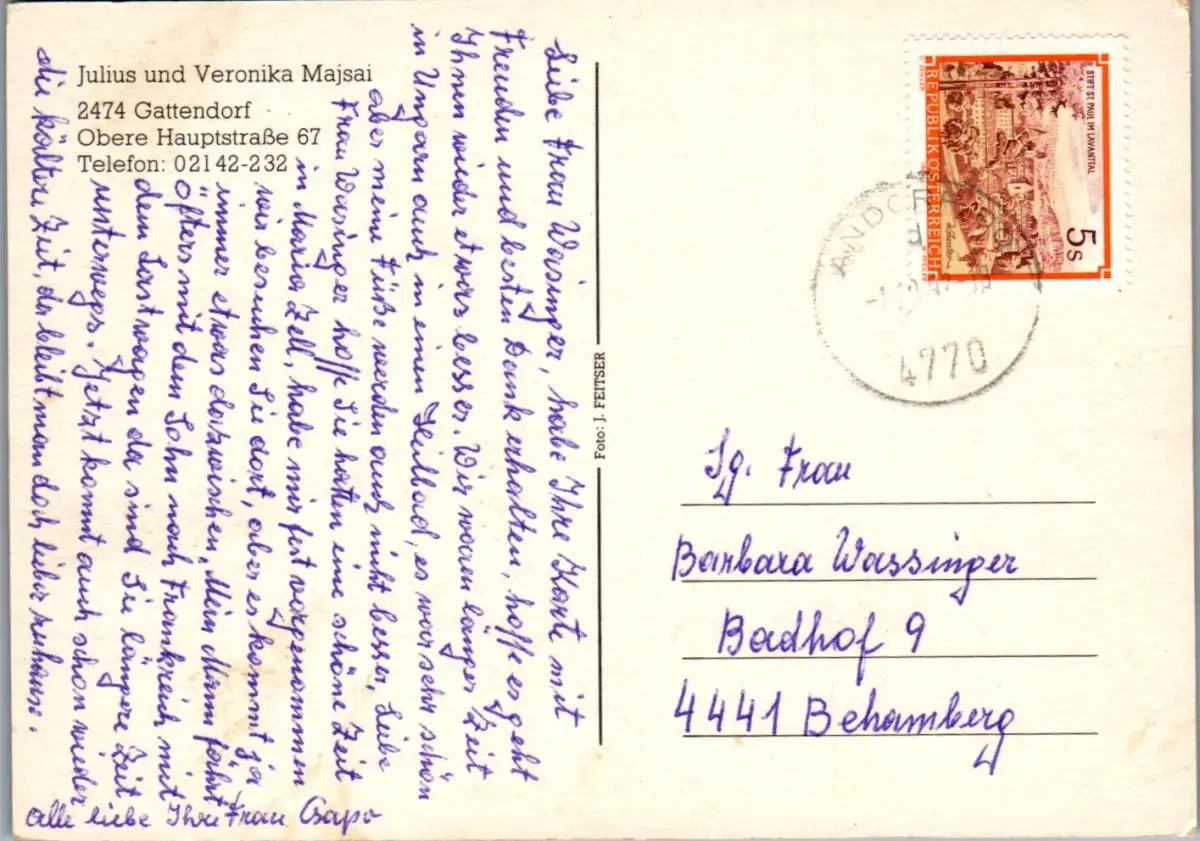 Julius und Veronika Majsai
2474 Gattendorf
Obere Hauptstraße 67
Telefon: 02142-232
Liebe Frau Wasinger, habe Ihre Karte mit
Freuden und besten Dank erhalten, hoffe es geht
Ihnen wieder etwas besser. Wir waren länger Zeit
in Ungarn auch in einen Heilbad, es war sehr schön
aber meine Füße werden auch nicht besser, Liebe
Frau Wasinger hoffe Sie hatten eine schöne Zeit
in Maria Zell, habe mir fest vorgenommen
wir besuchen Sie dort, aber es kommt ja
immer etwas dazwischen, Mein Mann fährt
öfters mit dem Sohn nach Frankreich mit
dem Lastwagen da sind Sie längere Zeit
unterwegs. Jetzt kommt auch schon wieder
die kältere Zeit, da bleibt man doch lieber zuhause.
Alle liebe Ihre Frau Csapo
Foto: J. FEITSER
REPUBLIK ÖSTERREICH
STIFT ST. PAUL IM LAVANTTAL
5 S
4770
Sg. Frau
Barbara Wassinger
Badhof 9
4441 Behamberg